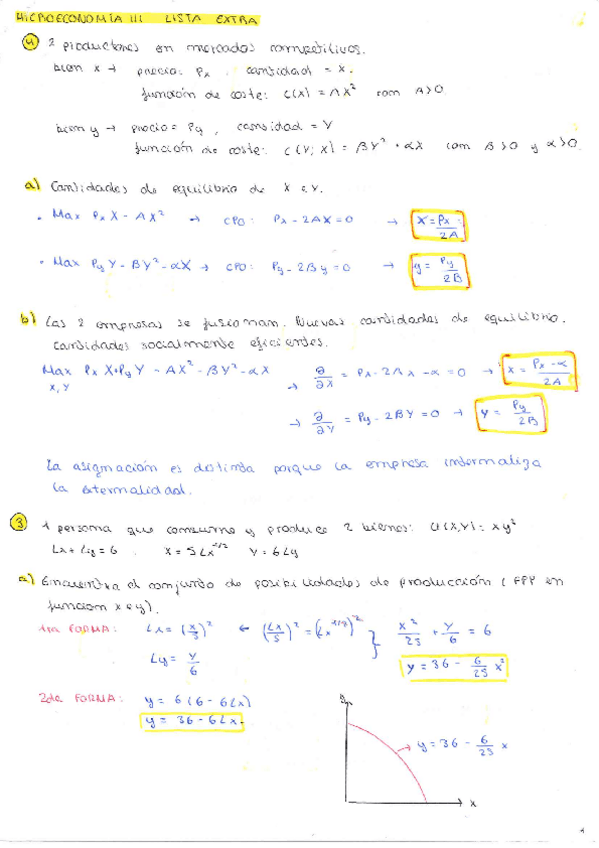 MICROECONOMÍA III LISTA EXTRA
4 2 productores en mercados competitivos.
bien x → precio: Px , cantidad = x.
función de coste: C(x) = AX² con A>0
bien y → precio = Py , cantidad = Y
función de coste: C(Y; X) = BY² + αX con B>0 y α>0.
a) Cantidades de equilibrio de X e Y.
• Max Px X - AX² → CPO: Px - 2AX = 0 → X = Px / 2A
• Max Py Y - BY² - αX → CPO: Py - 2By = 0 → y = Py / 2B
b) Las 2 empresas se fusionan. Nuevas cantidades de equilibrio.
cantidades socialmente eficientes.
Max Px X + Py Y - AX² - BY² - αX → ∂/∂X = Px - 2Ax - α = 0 → x = Px - α / 2A
x, y
→ ∂/∂Y = Py - 2BY = 0 → Y = Py / 2B
La asignación es distinta porque la empresa internaliza
la externalidad.
3 1 persona que consume y produce 2 bienes: U(X,Y) = xy²
Lx + Ly = 6 , X = 5Lx^1/2 Y = 6Ly
a) Encuentra el conjunto de posibilidades de producción (FPP en
función x e y).
1ra FORMA: Lx = (x/5)² ← (Lx/5)² = (Lx^1/2)² } x²/25 + Y/6 = 6
Ly = Y/6
y = 36 - 6/25 x²
2da FORMA: y = 6(6 - 6Lx)
y = 36 - 6Lx.
y
→ y = 36 - 6/25 x
x